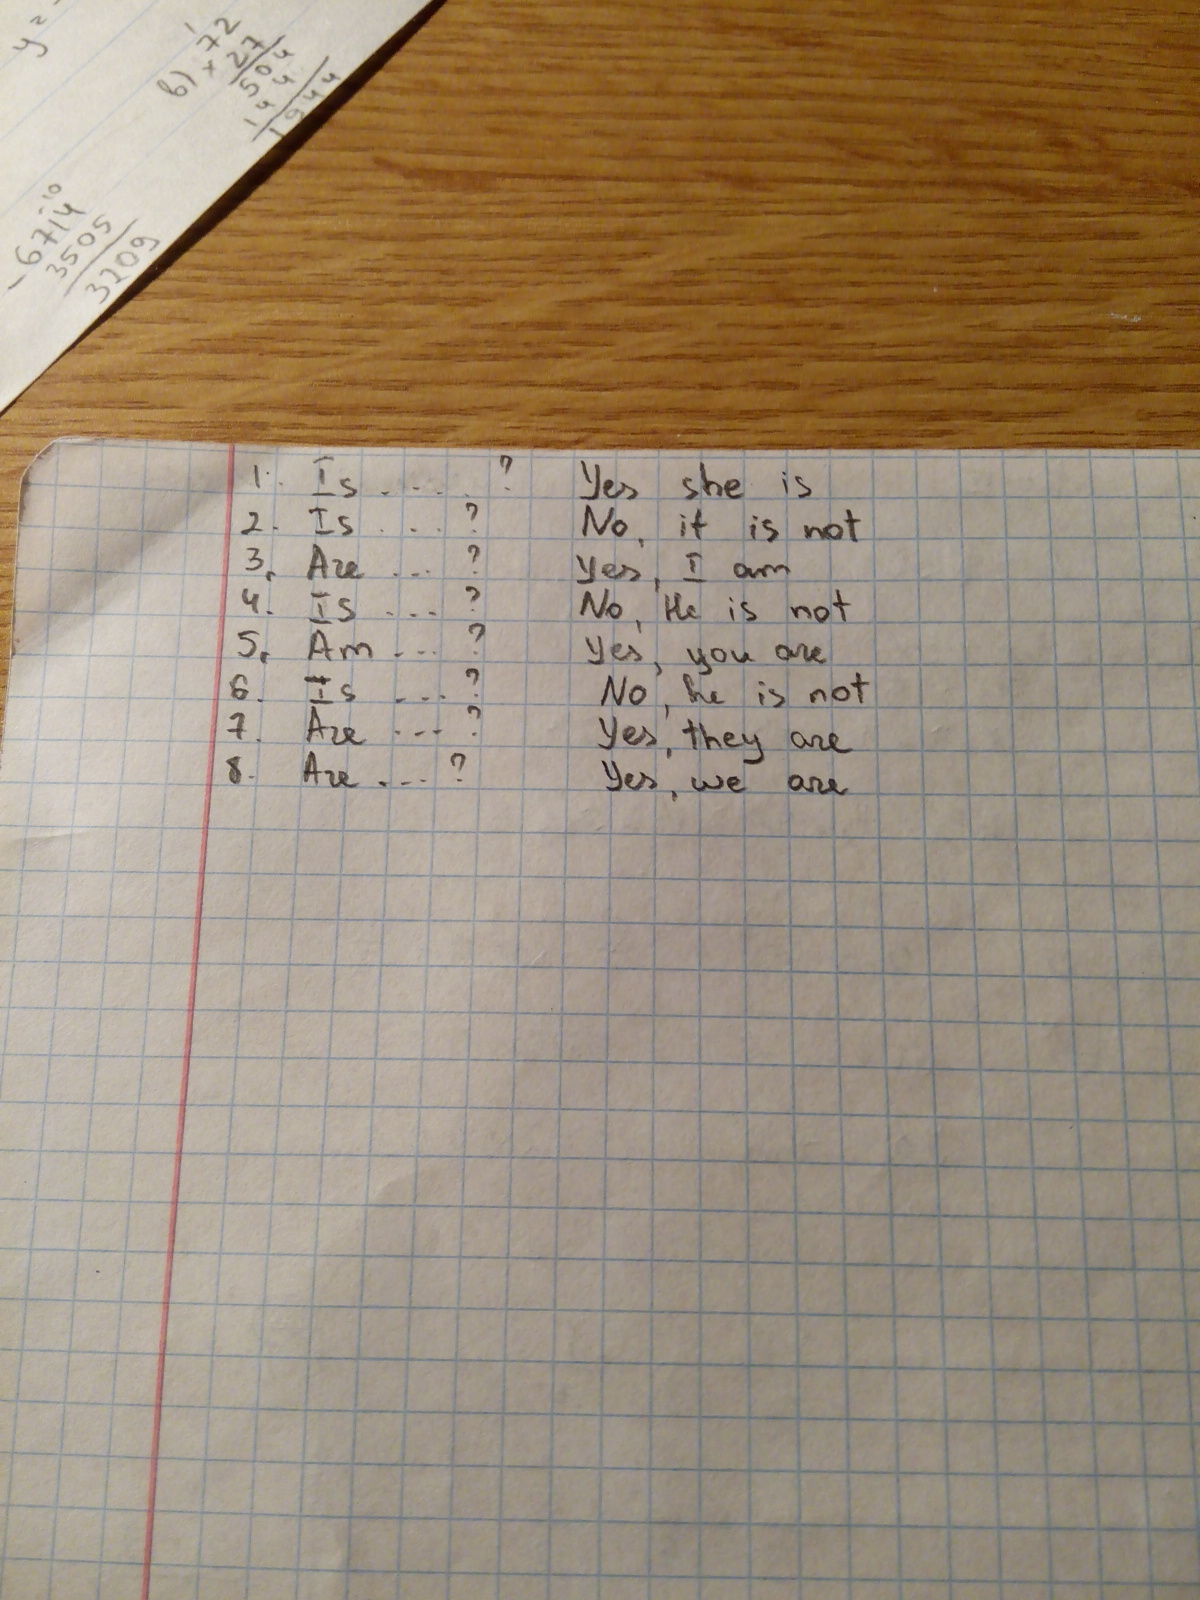 y =
в) × 72
27
504
144
1944
- 6714
3505
3209
1. Is ..... ? Yes she is
2. Is .... ? No, it is not
3. Are ... ? Yes, I am
4. Is .... ? No, He is not
5. Am ... ? Yes, you are
6. Is .... ? No, he is not
7. Are .... ? Yes, they are
8. Are .... ? Yes, we are